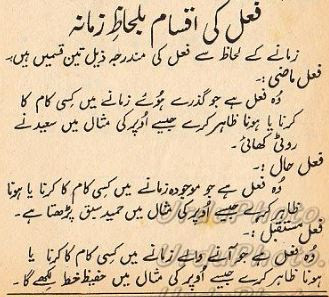 فعل کی اقسام بلحاظِ زمانہ
زمانے کے لحاظ سے فعل کی مندرجہ ذیل تین قسمیں ہیں۔
فعل ماضی :۔
وُہ فعل ہے جو گذرے ہُوئے زمانے میں کِسی کام کا
کرنا یا ہونا ظاہر کرے جیسے اُوپر کی مثال میں سعید نے
روٹی کھائی۔
فعل حال :۔
وُہ فعل ہے جو موجودہ زمانے میں کسی کام کا کرنا یا ہونا
ظاہر کرے جیسے اُوپر کی مثال میں حمید سبق پڑھتا ہے۔
فعل مستقبل :۔
وُہ فعل ہے جو آنے والے زمانے میں کسی کام کا کرنا یا
ہونا ظاہر کرے جیسے اُوپر کی مثال میں حفیظ خط لِکھے گا۔